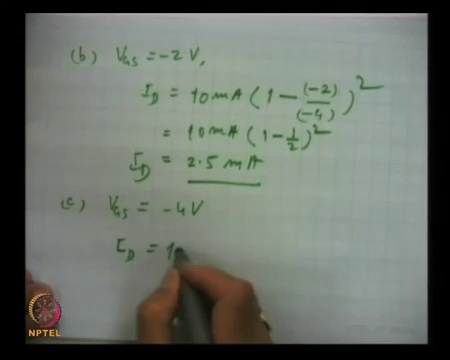 (b) V_GS = -2 V,
I_D = 10 mA (1 - (-2)/(-4))²
= 10 mA (1 - 1/2)²
I_D = 2.5 mA
(c) V_GS = -4V
I_D = 1
NPTEL